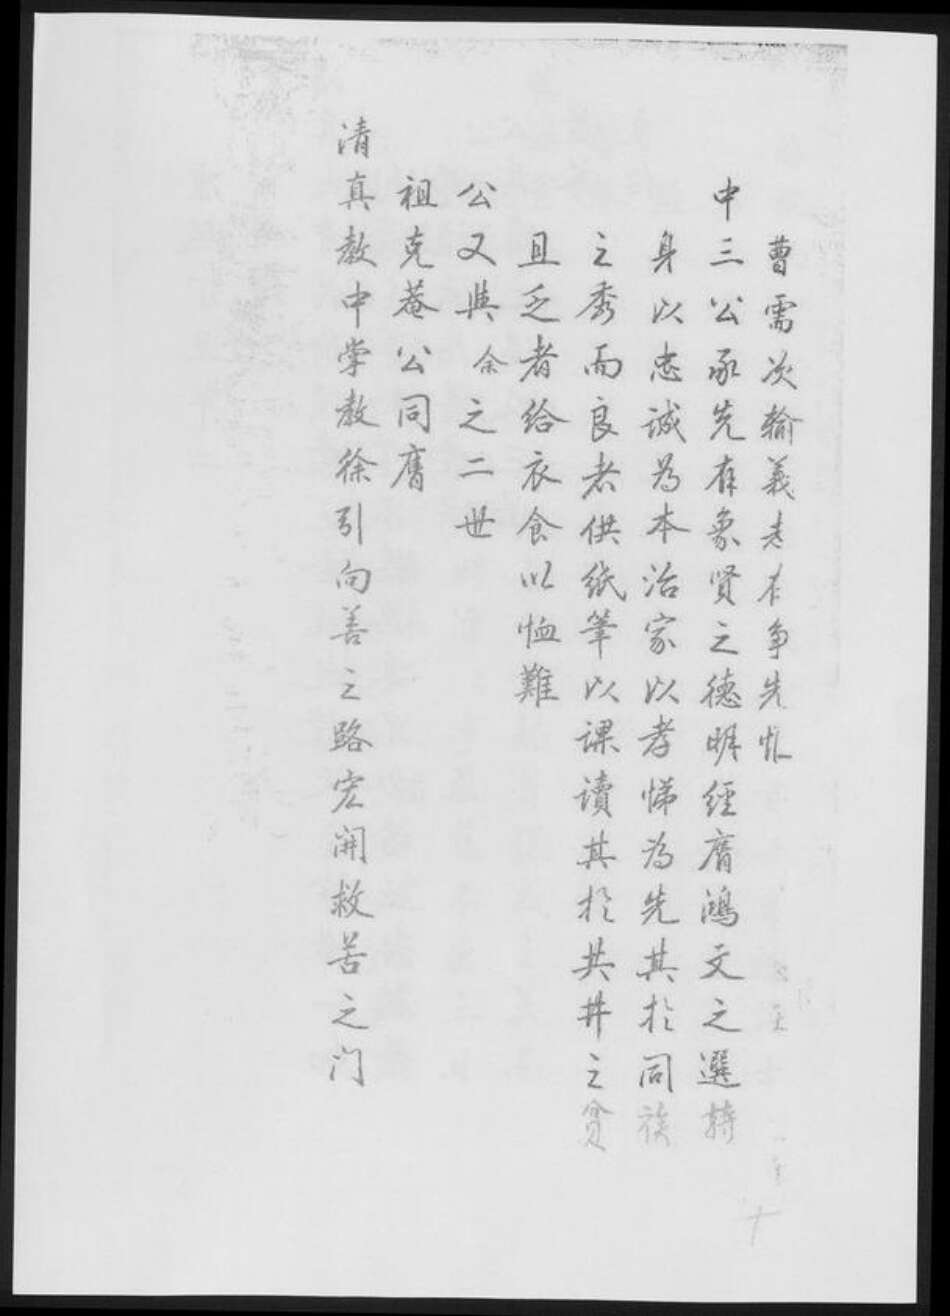 曹需次輸義者有爭先惟
中三公承先有象賢之德明經膺鴻文之選持
身以忠誠為本治家以孝悌為先其於同族
之秀而良者供紙筆以課讀其於共井之貧
且乏者給衣食以恤難
公又與余之二世
祖克菴公同膺
清真教中掌教徐引向善之路宏開救苦之门
十